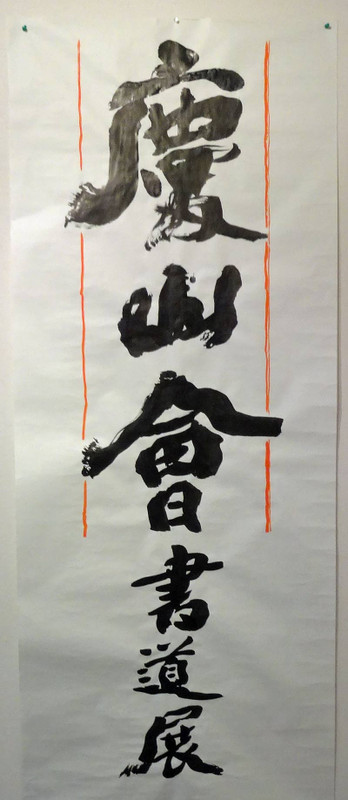 慶山會書道展